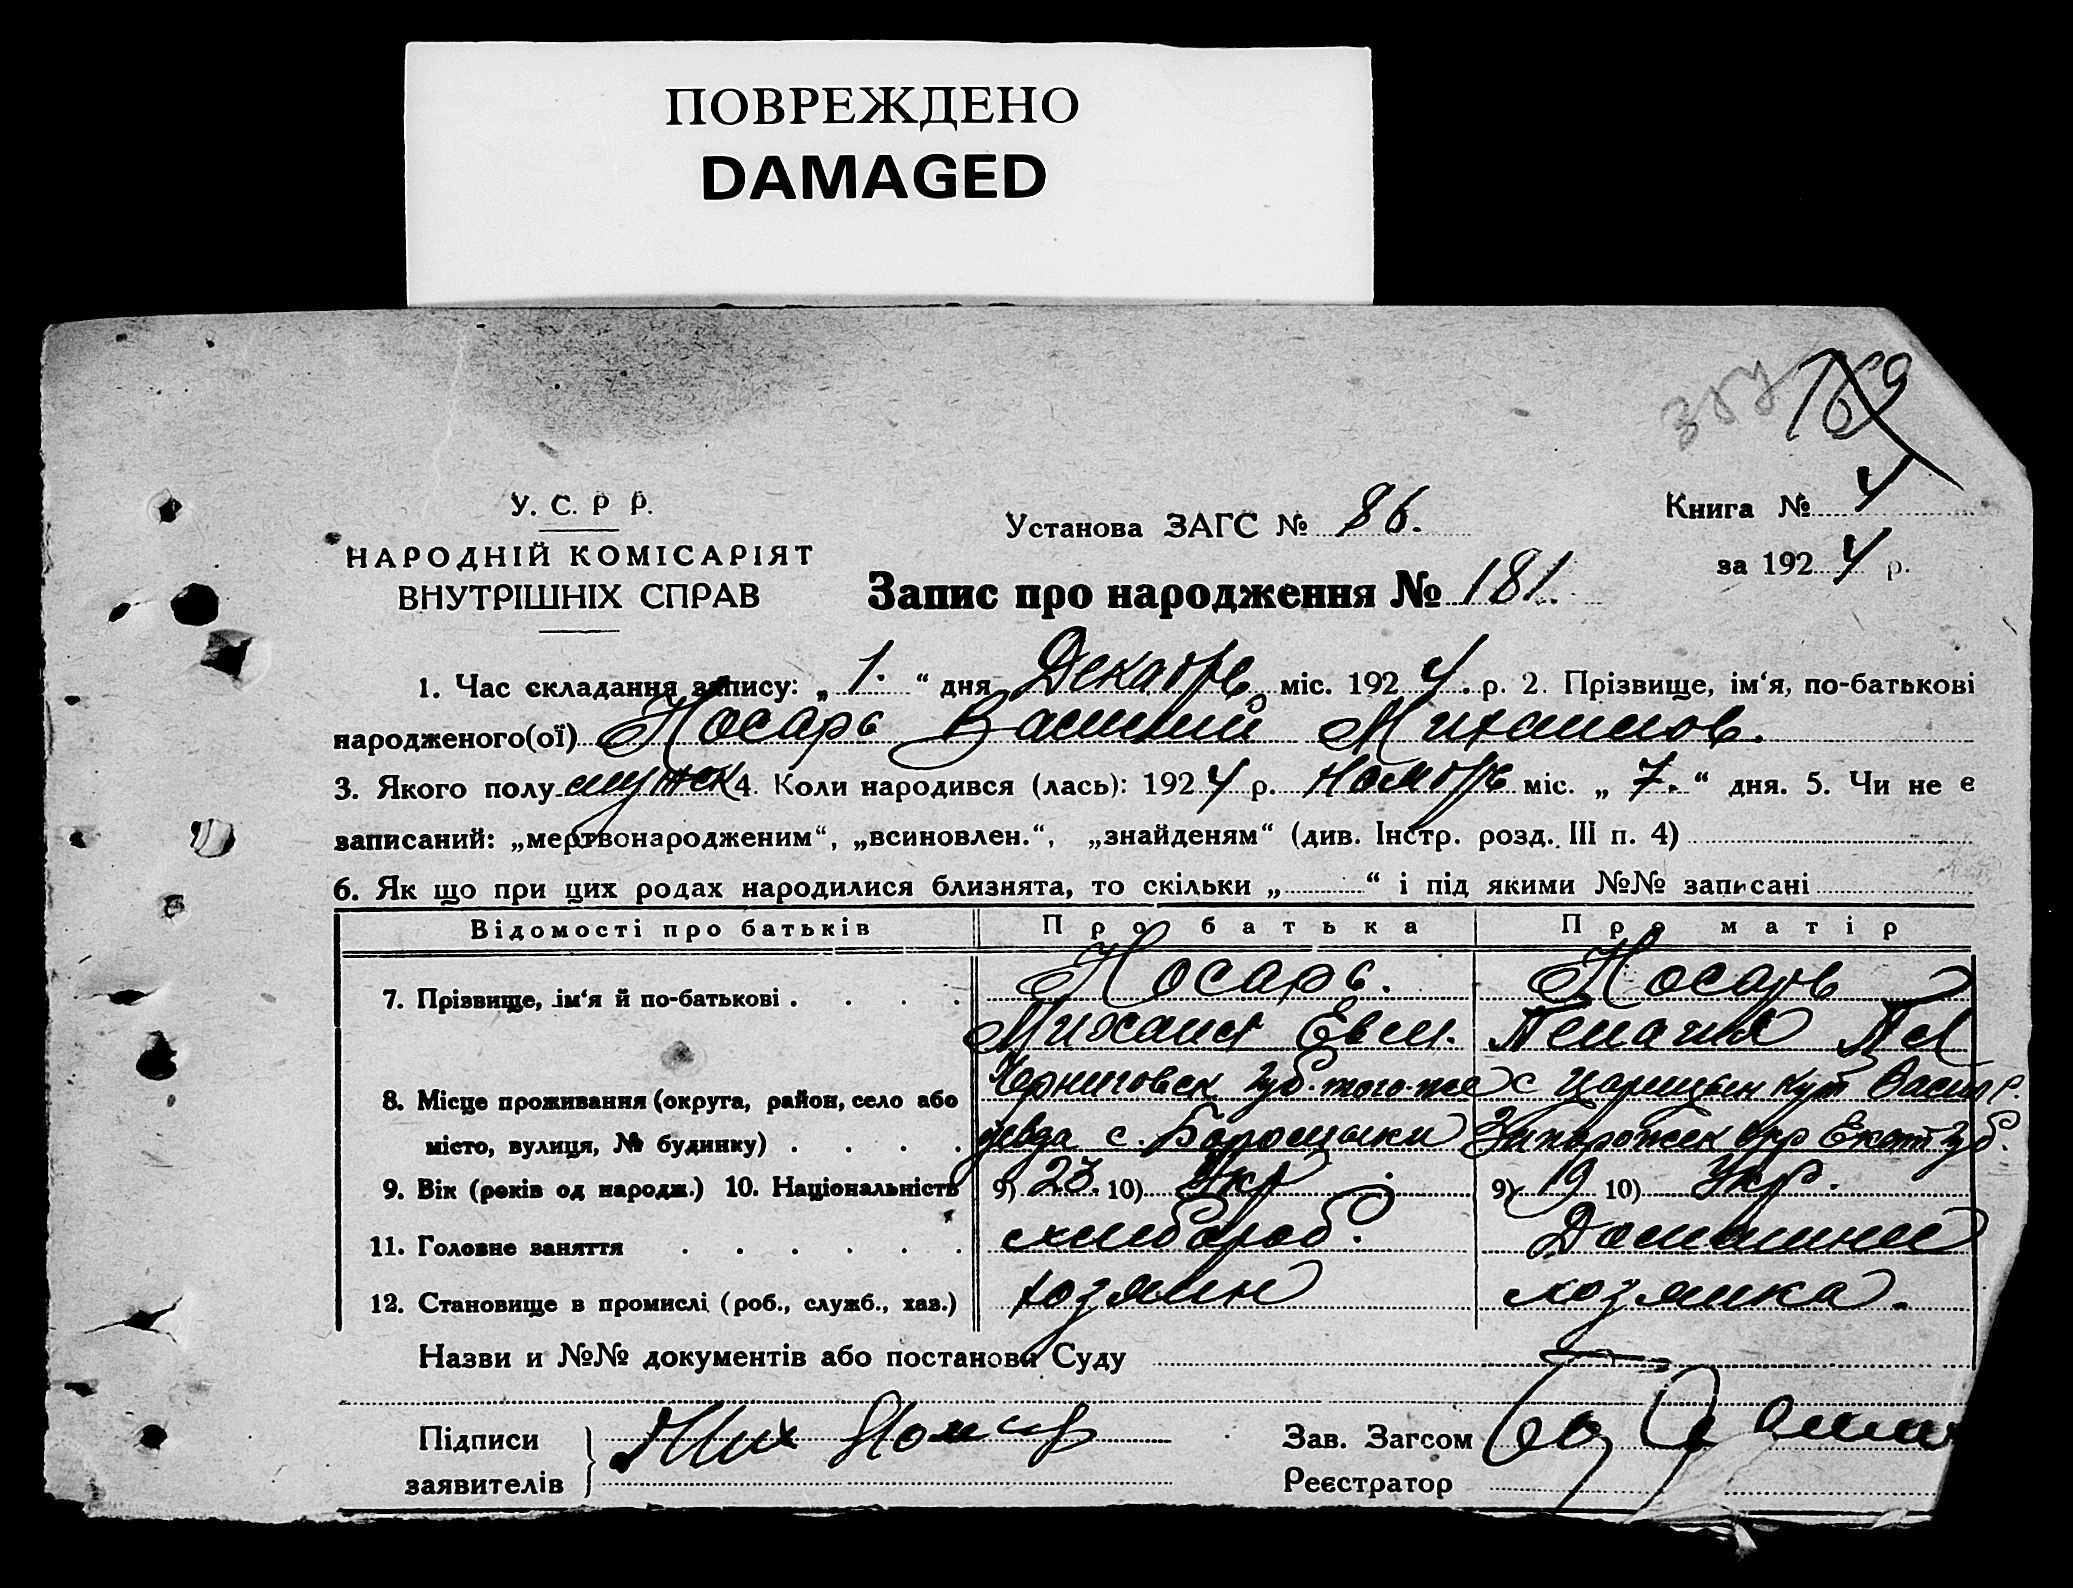 ПОВРЕЖДЕНО
DAMAGED
169
У. С. Р Р.
НАРОДНІЙ КОМІСАРІЯТ
ВНУТРІШНІХ СПРАВ
Установа ЗАГС № 86.
Книга № 4
за 1924 р.
Запис про народження № 181.
1. Час складання запису: „ 1. “ дня Декабрь міс. 1924. р. 2. Прізвище, ім‘я, по-батькові
народженого(ої) Носарь Василий Михаилов.
3. Якого полу мужск 4. Коли народився (лась): 1924 р. Ноябрь міс. „ 7. “ дня. 5. Чи не є
записаний: „мертвонародженим“, „всиновлен.“, „знайденям“ (див. Інстр. розд. III п. 4)
6. Як що при цих родах народилися близнята, то скільки „ “ і під якими №№ записані
Відомості про батьків Про батька Про матір
7. Прізвище, ім‘я й по-батькові . . . . Носарь. Носарь
Михаил Евсм. Пелагия
8. Місце проживання (округа, район, село або Черниговск губ. того-же с Царицын Кут Васил Р.
місто, вулиця, № будинку) . . . . уезда с. Запорожск окр Екат губ.
9. Вік (років од народж.) 10. Національність 9) 23. 10) Укр 9) 19 10) Укр.
11. Головне заняття . . . . . . хлебороб. Домашнее
12. Становище в промислі (роб., служб., хаз.) хозяин хозяйка.
Назви и №№ документів або постанови Суду
Підписи
заявителів
Мих Носарь
Зав. Загсом
Реєстратор